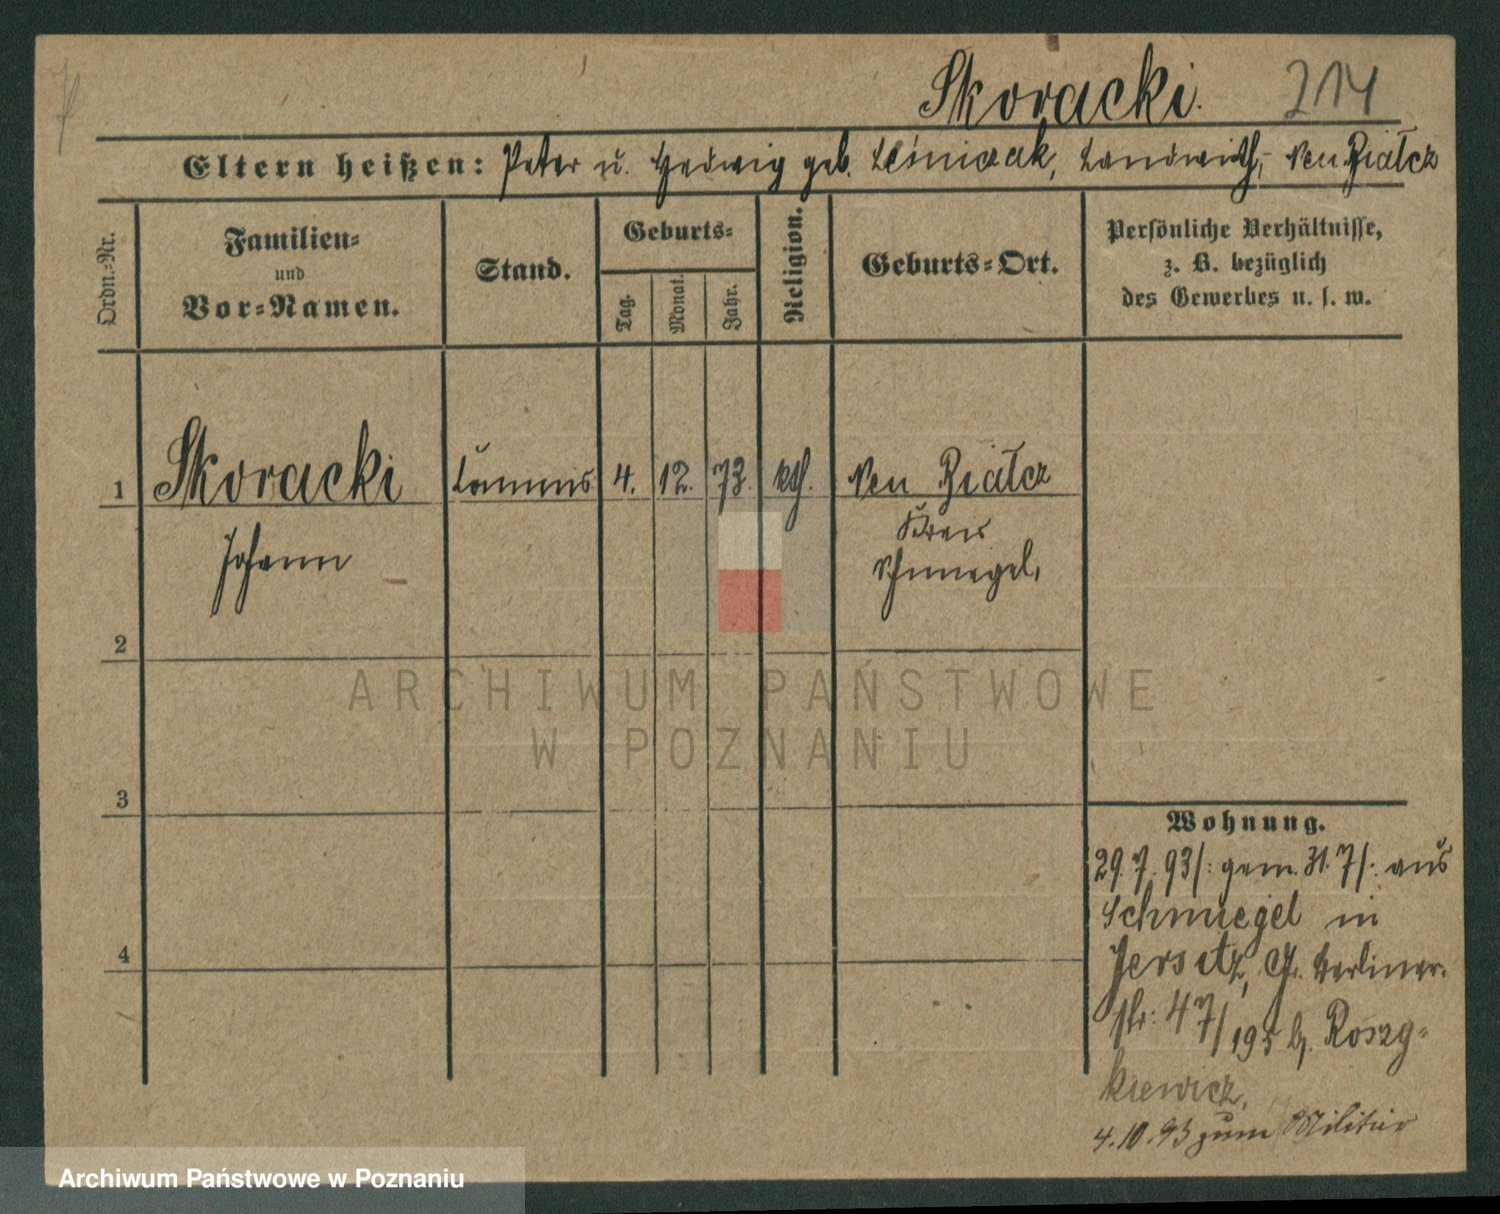 Skoracki. 214
Eltern heißen: Peter u. Hedwig geb. Leśniczak, Landwirth, Neu Białcz
Ordn.-Nr.
Familien-
und
Vor-Namen.
Stand.
Geburts-
Tag.
Monat.
Jahr.
Religion.
Geburts-Ort.
Persönliche Verhältnisse,
z. B. bezüglich
des Gewerbes u. s. w.
1 Skoracki 4. 12. 73. kth. Neu Białcz
Johann
Kreis
Schmiegel,
2
3
4
Wohnung.
29.7.93/: gem. 31.7/: aus
Schmiegel in
Jersitz, Gr. Berliner-
str: 47/195 b. Roszy-
kiewicz,
4.10.93 zum Militär
ARCHIWUM PAŃSTWOWE
W POZNANIU
Archiwum Państwowe w Poznaniu